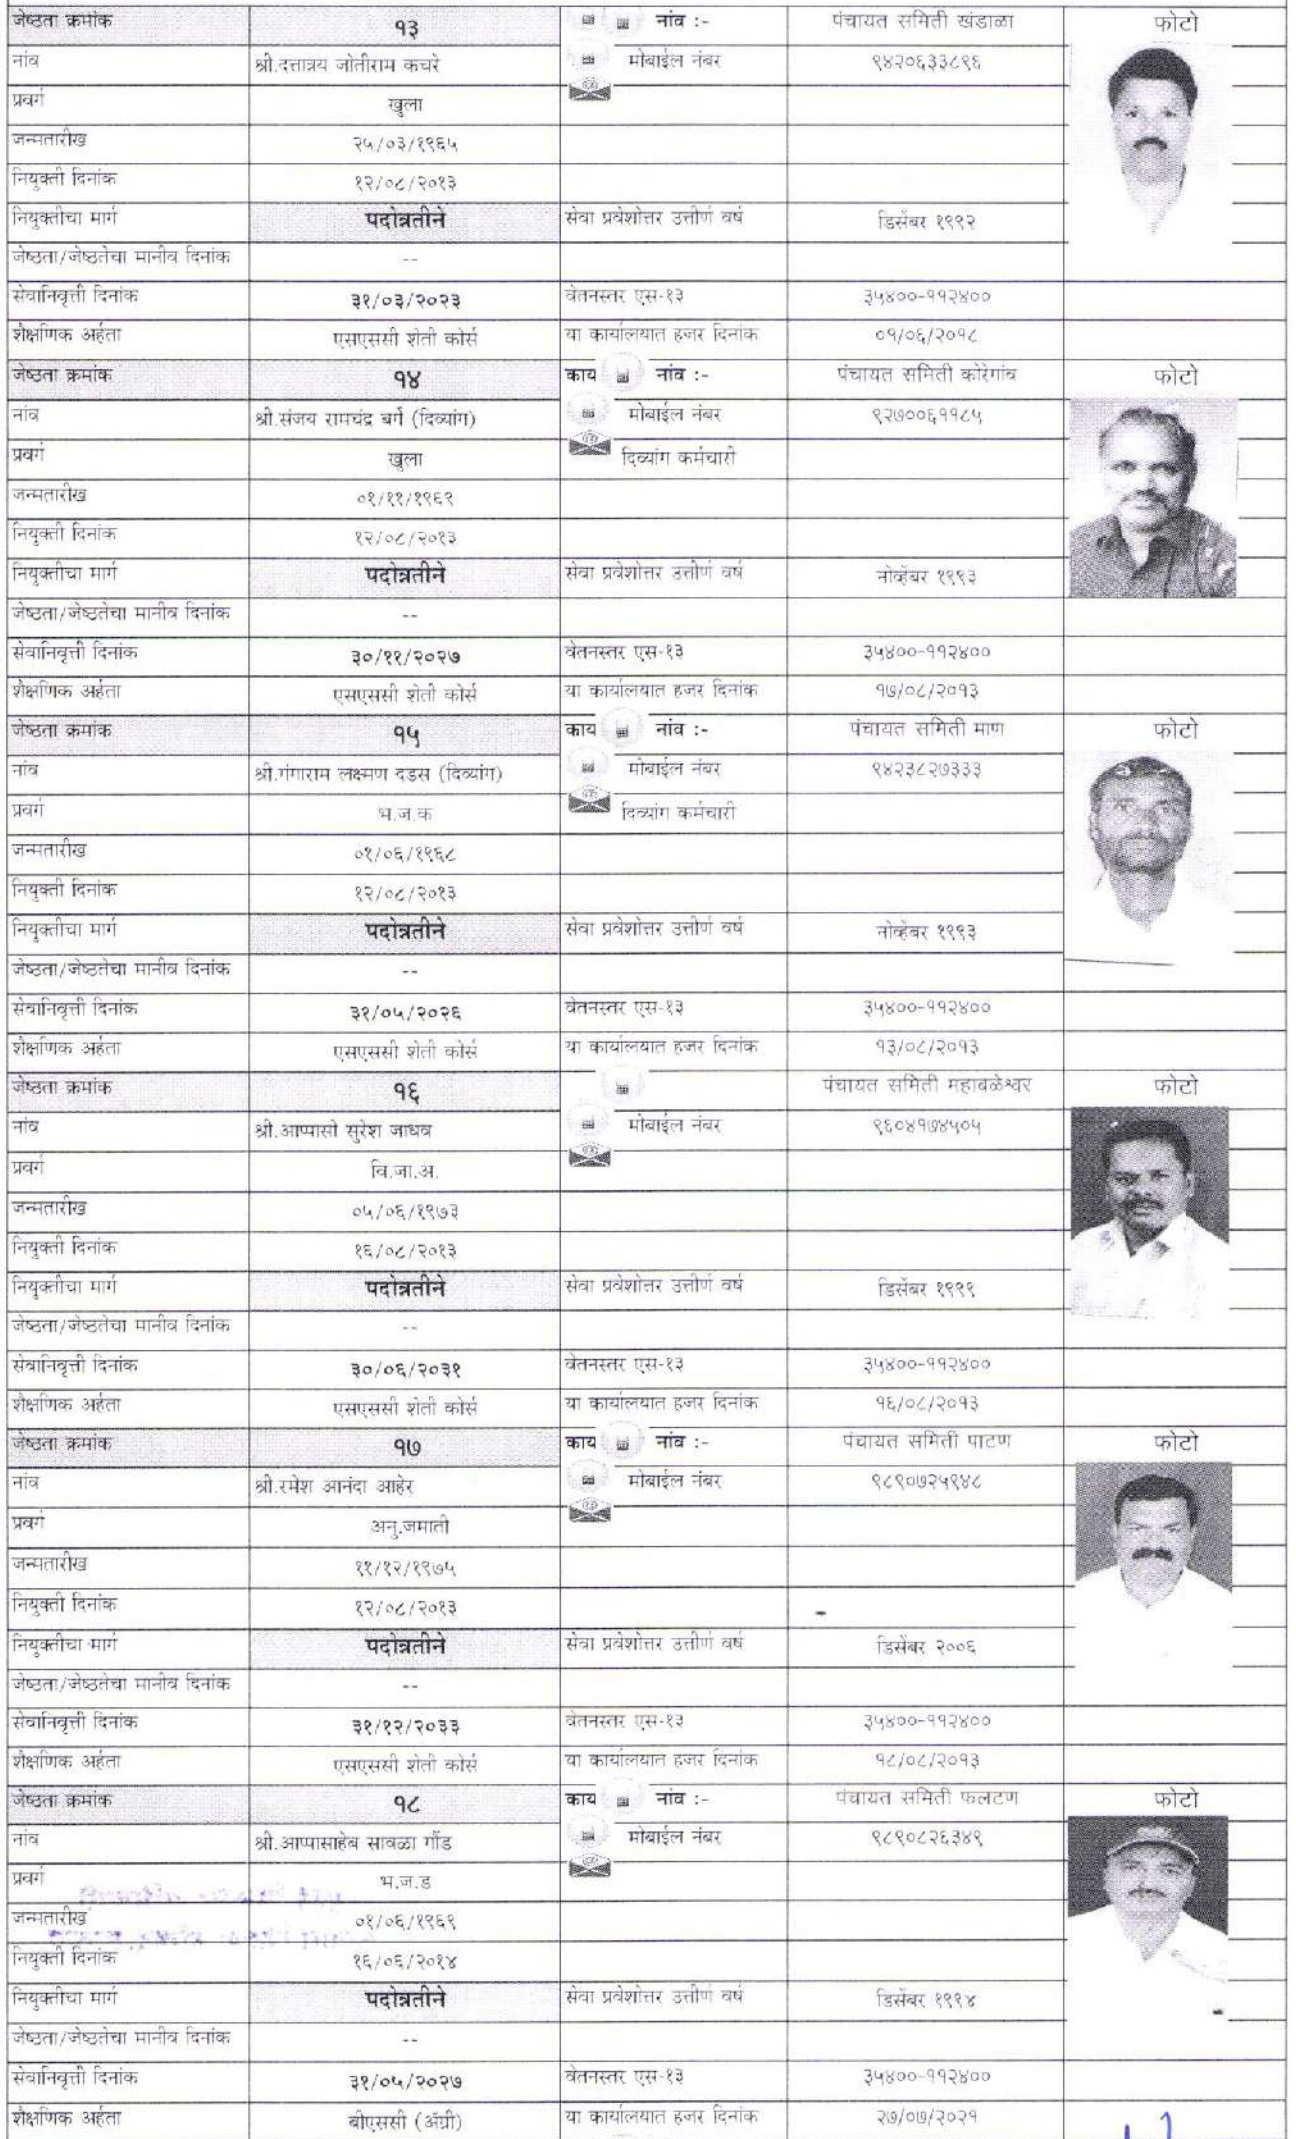 जेष्ठता क्रमांक १३ नांव :- पंचायत समिती खंडाळा फोटो
नांव श्री.दत्तात्रय जोतीराम कचरे मोबाईल नंबर ९४२०६३३८९६
प्रवर्ग खुला
जन्मतारीख २५/०३/१९६५
नियुक्ती दिनांक १२/०८/२०१३
नियुक्तीचा मार्ग पदोन्नतीने सेवा प्रवेशोत्तर उत्तीर्ण वर्ष डिसेंबर १९९२
जेष्ठता/जेष्ठतेचा मानीव दिनांक --
सेवानिवृत्ती दिनांक ३१/०३/२०२३ वेतनस्तर एस-१३ ३५४००-११२४००
शैक्षणिक अर्हता एसएससी शेती कोर्स या कार्यालयात हजर दिनांक ०१/०६/२०१८
जेष्ठता क्रमांक १४ काय नांव :- पंचायत समिती कोरेगांव फोटो
नांव श्री.संजय रामचंद्र बर्गे (दिव्यांग) मोबाईल नंबर ९२७००६११८५
प्रवर्ग खुला दिव्यांग कर्मचारी
जन्मतारीख ०१/११/१९६९
नियुक्ती दिनांक १२/०८/२०१३
नियुक्तीचा मार्ग पदोन्नतीने सेवा प्रवेशोत्तर उत्तीर्ण वर्ष नोव्हेंबर १९९३
जेष्ठता/जेष्ठतेचा मानीव दिनांक --
सेवानिवृत्ती दिनांक ३०/११/२०२७ वेतनस्तर एस-१३ ३५४००-११२४००
शैक्षणिक अर्हता एसएससी शेती कोर्स या कार्यालयात हजर दिनांक १७/०८/२०१३
जेष्ठता क्रमांक १५ काय नांव :- पंचायत समिती माण फोटो
नांव श्री.गंगाराम लक्ष्मण दडस (दिव्यांग) मोबाईल नंबर ९४२३८२७३३३
प्रवर्ग भ.ज.क दिव्यांग कर्मचारी
जन्मतारीख ०१/०६/१९६८
नियुक्ती दिनांक १२/०८/२०१३
नियुक्तीचा मार्ग पदोन्नतीने सेवा प्रवेशोत्तर उत्तीर्ण वर्ष नोव्हेंबर १९९३
जेष्ठता/जेष्ठतेचा मानीव दिनांक --
सेवानिवृत्ती दिनांक ३१/०५/२०२६ वेतनस्तर एस-१३ ३५४००-११२४००
शैक्षणिक अर्हता एसएससी शेती कोर्स या कार्यालयात हजर दिनांक १३/०८/२०१३
जेष्ठता क्रमांक १६ पंचायत समिती महाबळेश्वर फोटो
नांव श्री.आप्पासो सुरेश जाधव मोबाईल नंबर ९६०४१७४५०५
प्रवर्ग वि.जा.अ.
जन्मतारीख ०५/०६/१९७३
नियुक्ती दिनांक १६/०८/२०१३
नियुक्तीचा मार्ग पदोन्नतीने सेवा प्रवेशोत्तर उत्तीर्ण वर्ष डिसेंबर १९९९
जेष्ठता/जेष्ठतेचा मानीव दिनांक --
सेवानिवृत्ती दिनांक ३०/०६/२०३१ वेतनस्तर एस-१३ ३५४००-११२४००
शैक्षणिक अर्हता एसएससी शेती कोर्स या कार्यालयात हजर दिनांक १६/०८/२०१३
जेष्ठता क्रमांक १७ काय नांव :- पंचायत समिती पाटण फोटो
नांव श्री.रमेश आनंदा आहेर मोबाईल नंबर ९८९०७२५९४८
प्रवर्ग अनु.जमाती
जन्मतारीख ११/१२/१९७५
नियुक्ती दिनांक १२/०८/२०१३
नियुक्तीचा मार्ग पदोन्नतीने सेवा प्रवेशोत्तर उत्तीर्ण वर्ष डिसेंबर २००६
जेष्ठता/जेष्ठतेचा मानीव दिनांक --
सेवानिवृत्ती दिनांक ३१/१२/२०३३ वेतनस्तर एस-१३ ३५४००-११२४००
शैक्षणिक अर्हता एसएससी शेती कोर्स या कार्यालयात हजर दिनांक १८/०८/२०१३
जेष्ठता क्रमांक १८ काय नांव :- पंचायत समिती फलटण फोटो
नांव श्री.आप्पासाहेब सावळा गौंड मोबाईल नंबर ९८९०८२६३४९
प्रवर्ग भ.ज.ड
जन्मतारीख ०१/०६/१९६९
नियुक्ती दिनांक १६/०६/२०१४
नियुक्तीचा मार्ग पदोन्नतीने सेवा प्रवेशोत्तर उत्तीर्ण वर्ष डिसेंबर १९९४
जेष्ठता/जेष्ठतेचा मानीव दिनांक --
सेवानिवृत्ती दिनांक ३१/०५/२०२७ वेतनस्तर एस-१३ ३५४००-११२४००
शैक्षणिक अर्हता बीएससी (ॲग्री) या कार्यालयात हजर दिनांक २७/०७/२०२१